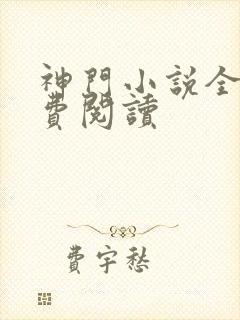 神門小說全
費閱讀
費宇愁